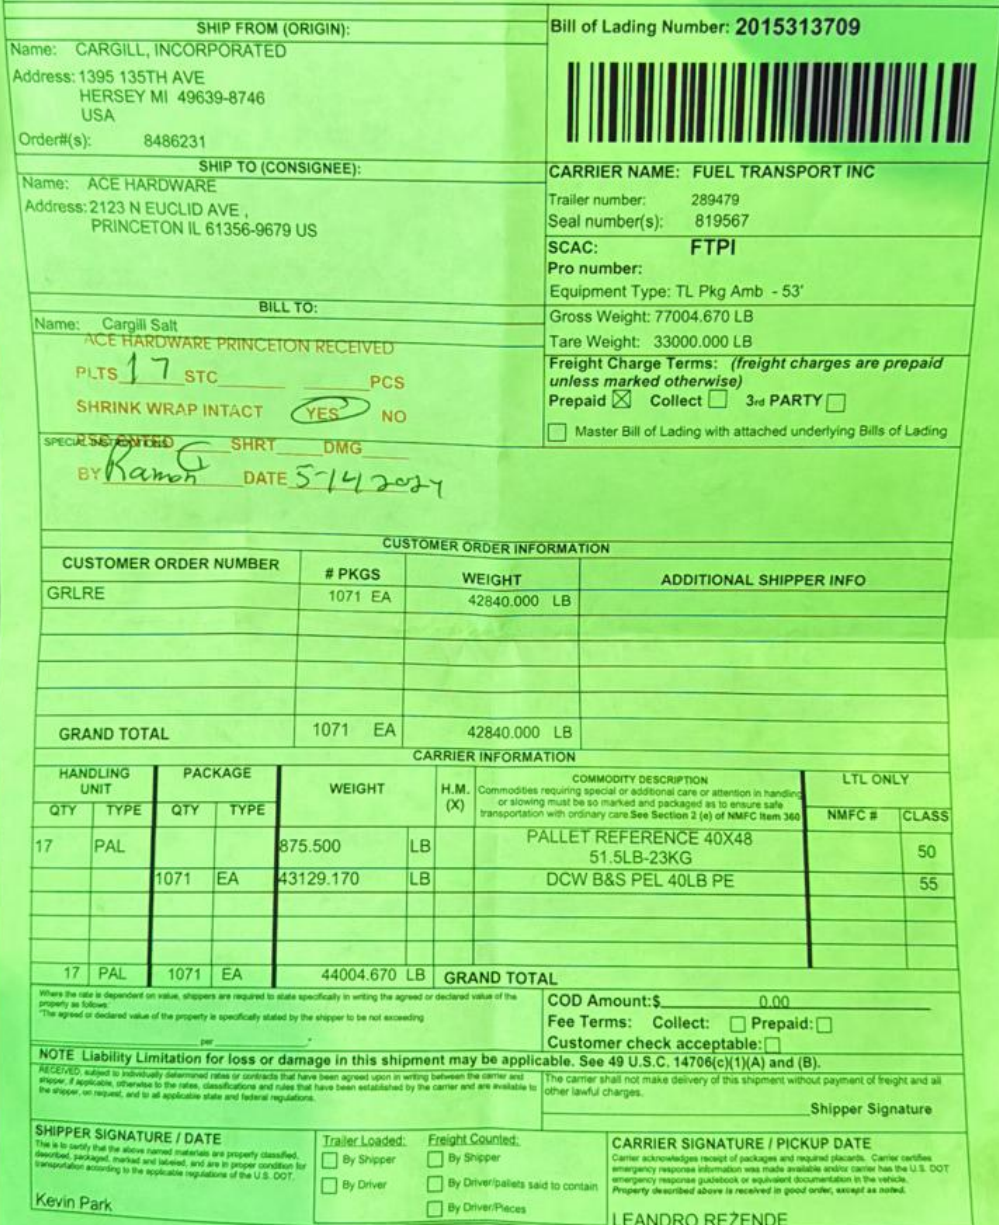 SHIP FROM (ORIGIN):
Name: CARGILL, INCORPORATED
Address: 1395 135TH AVE
HERSEY MI 49639-8746
USA
Order#(s): 8486231
Bill of Lading Number: 2015313709
SHIP TO (CONSIGNEE):
Name: ACE HARDWARE
Address: 2123 N EUCLID AVE ,
PRINCETON IL 61356-9679 US
CARRIER NAME: FUEL TRANSPORT INC
Trailer number: 289479
Seal number(s): 819567
SCAC: FTPI
Pro number:
Equipment Type: TL Pkg Amb - 53'
Gross Weight: 77004.670 LB
Tare Weight: 33000.000 LB
Freight Charge Terms: (freight charges are prepaid
unless marked otherwise)
Prepaid ☒ Collect ☐ 3rd PARTY ☐
☐ Master Bill of Lading with attached underlying Bills of Lading
BILL TO:
Name: Cargill Salt
ACE HARDWARE PRINCETON RECEIVED
PLTS 17 STC PCS
SHRINK WRAP INTACT YES NO
SHRT DMG
BY Ramon DATE 5-14 2024
CUSTOMER ORDER INFORMATION
CUSTOMER ORDER NUMBER # PKGS WEIGHT ADDITIONAL SHIPPER INFO
GRLRE 1071 EA 42840.000 LB
GRAND TOTAL 1071 EA 42840.000 LB
CARRIER INFORMATION
HANDLING UNIT PACKAGE WEIGHT H.M. (X) COMMODITY DESCRIPTION LTL ONLY
Commodities requiring special or additional care or attention in handling
or stowing must be so marked and packaged as to ensure safe
transportation with ordinary care. See Section 2 (e) of NMFC Item 360
QTY TYPE QTY TYPE NMFC # CLASS
17 PAL 875.500 LB PALLET REFERENCE 40X48 50
51.5LB-23KG
1071 EA 43129.170 LB DCW B&S PEL 40LB PE 55
17 PAL 1071 EA 44004.670 LB GRAND TOTAL
Where the rate is dependent on value, shippers are required to state specifically in writing the agreed or declared value of the
property as follows:
"The agreed or declared value of the property is specifically stated by the shipper to be not exceeding
per ."
COD Amount:$ 0.00
Fee Terms: Collect: ☐ Prepaid: ☐
Customer check acceptable: ☐
NOTE Liability Limitation for loss or damage in this shipment may be applicable. See 49 U.S.C. 14706(c)(1)(A) and (B).
RECEIVED, subject to individually determined rates or contracts that have been agreed upon in writing between the carrier and
shipper, if applicable, otherwise to the rates, classifications and rules that have been established by the carrier and are available to
the shipper, on request, and to all applicable state and federal regulations.
The carrier shall not make delivery of this shipment without payment of freight and all
other lawful charges.
Shipper Signature
SHIPPER SIGNATURE / DATE
This is to certify that the above named materials are properly classified,
described, packaged, marked and labeled, and are in proper condition for
transportation according to the applicable regulations of the U.S. DOT.
Kevin Park
Trailer Loaded:
☐ By Shipper
☐ By Driver
Freight Counted:
☐ By Shipper
☐ By Driver/pallets said to contain
☐ By Driver/Pieces
CARRIER SIGNATURE / PICKUP DATE
Carrier acknowledges receipt of packages and required placards. Carrier certifies
emergency response information was made available and/or carrier has the U.S. DOT
emergency response guidebook or equivalent documentation in the vehicle.
Property described above is received in good order, except as noted.
LEANDRO REZENDE